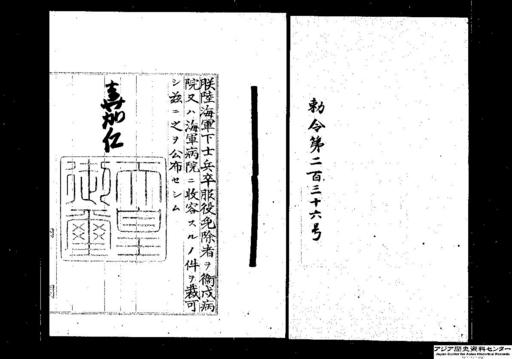 勅令第二百三十六号
朕陸海軍下士兵卒服役免除者ヲ衞戍病
院又ハ海軍病院ニ收容スルノ件ヲ裁可
シ茲ニ之ヲ公布セシム
嘉仁
天皇
御璽
アジア歴史資料センター
Japan Center for Asian Historical Records